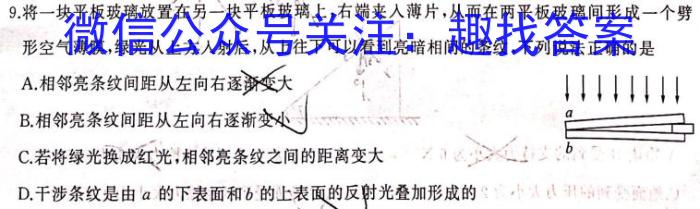 9.将一块平板玻璃放置在另一块平板玻璃上,右端夹入薄片,从而在两平板玻璃间形成一个劈
形空气薄膜,绿光从上方入射后,从上往下可以看到亮暗相间的条纹,下列说法正确的是
微信公众号关注：趣找答案
A.相邻亮条纹间距从左向右逐渐变大
B.相邻亮条纹间距从左向右逐渐变小
C.若将绿光换成红光,相邻亮条纹之间的距离变大
D.干涉条纹是由a的下表面和b的上表面的反射光叠加形成的
a
b